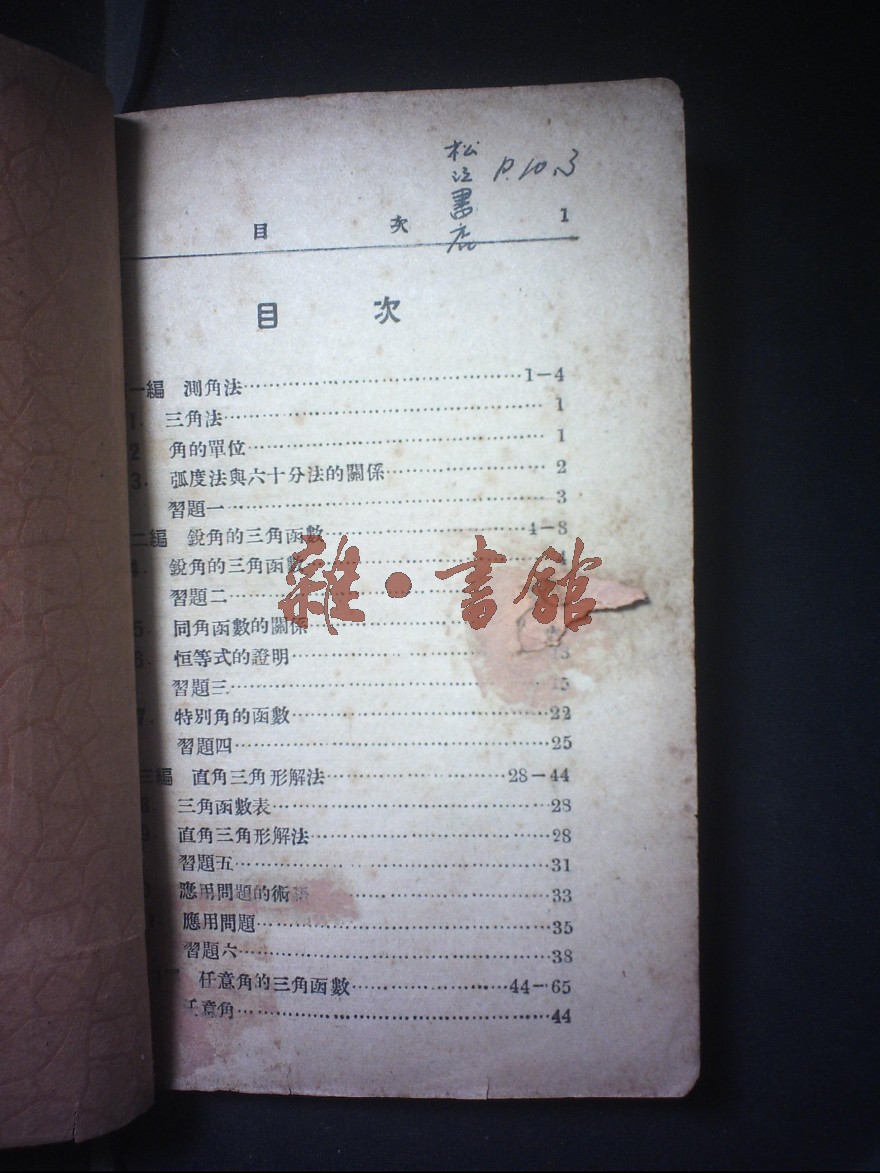 松江書店 P.10.3
目 次 1
目 次
一編 測角法……1－4
1. 三角法……1
2 角的單位……1
3. 弧度法與六十分法的關係……2
習題一……3
二編 銳角的三角函數……4－8
4. 銳角的三角函數……4
習題二……
5. 同角函數的關係……
6. 恒等式的證明……13
習題三……15
7. 特別角的函數……22
習題四……25
三編 直角三角形解法……28－44
8 三角函數表……28
9. 直角三角形解法……28
習題五……31
應用問題的術語……33
應用問題……35
習題六……38
任意角的三角函數……44－65
任意角……44
雜·書館